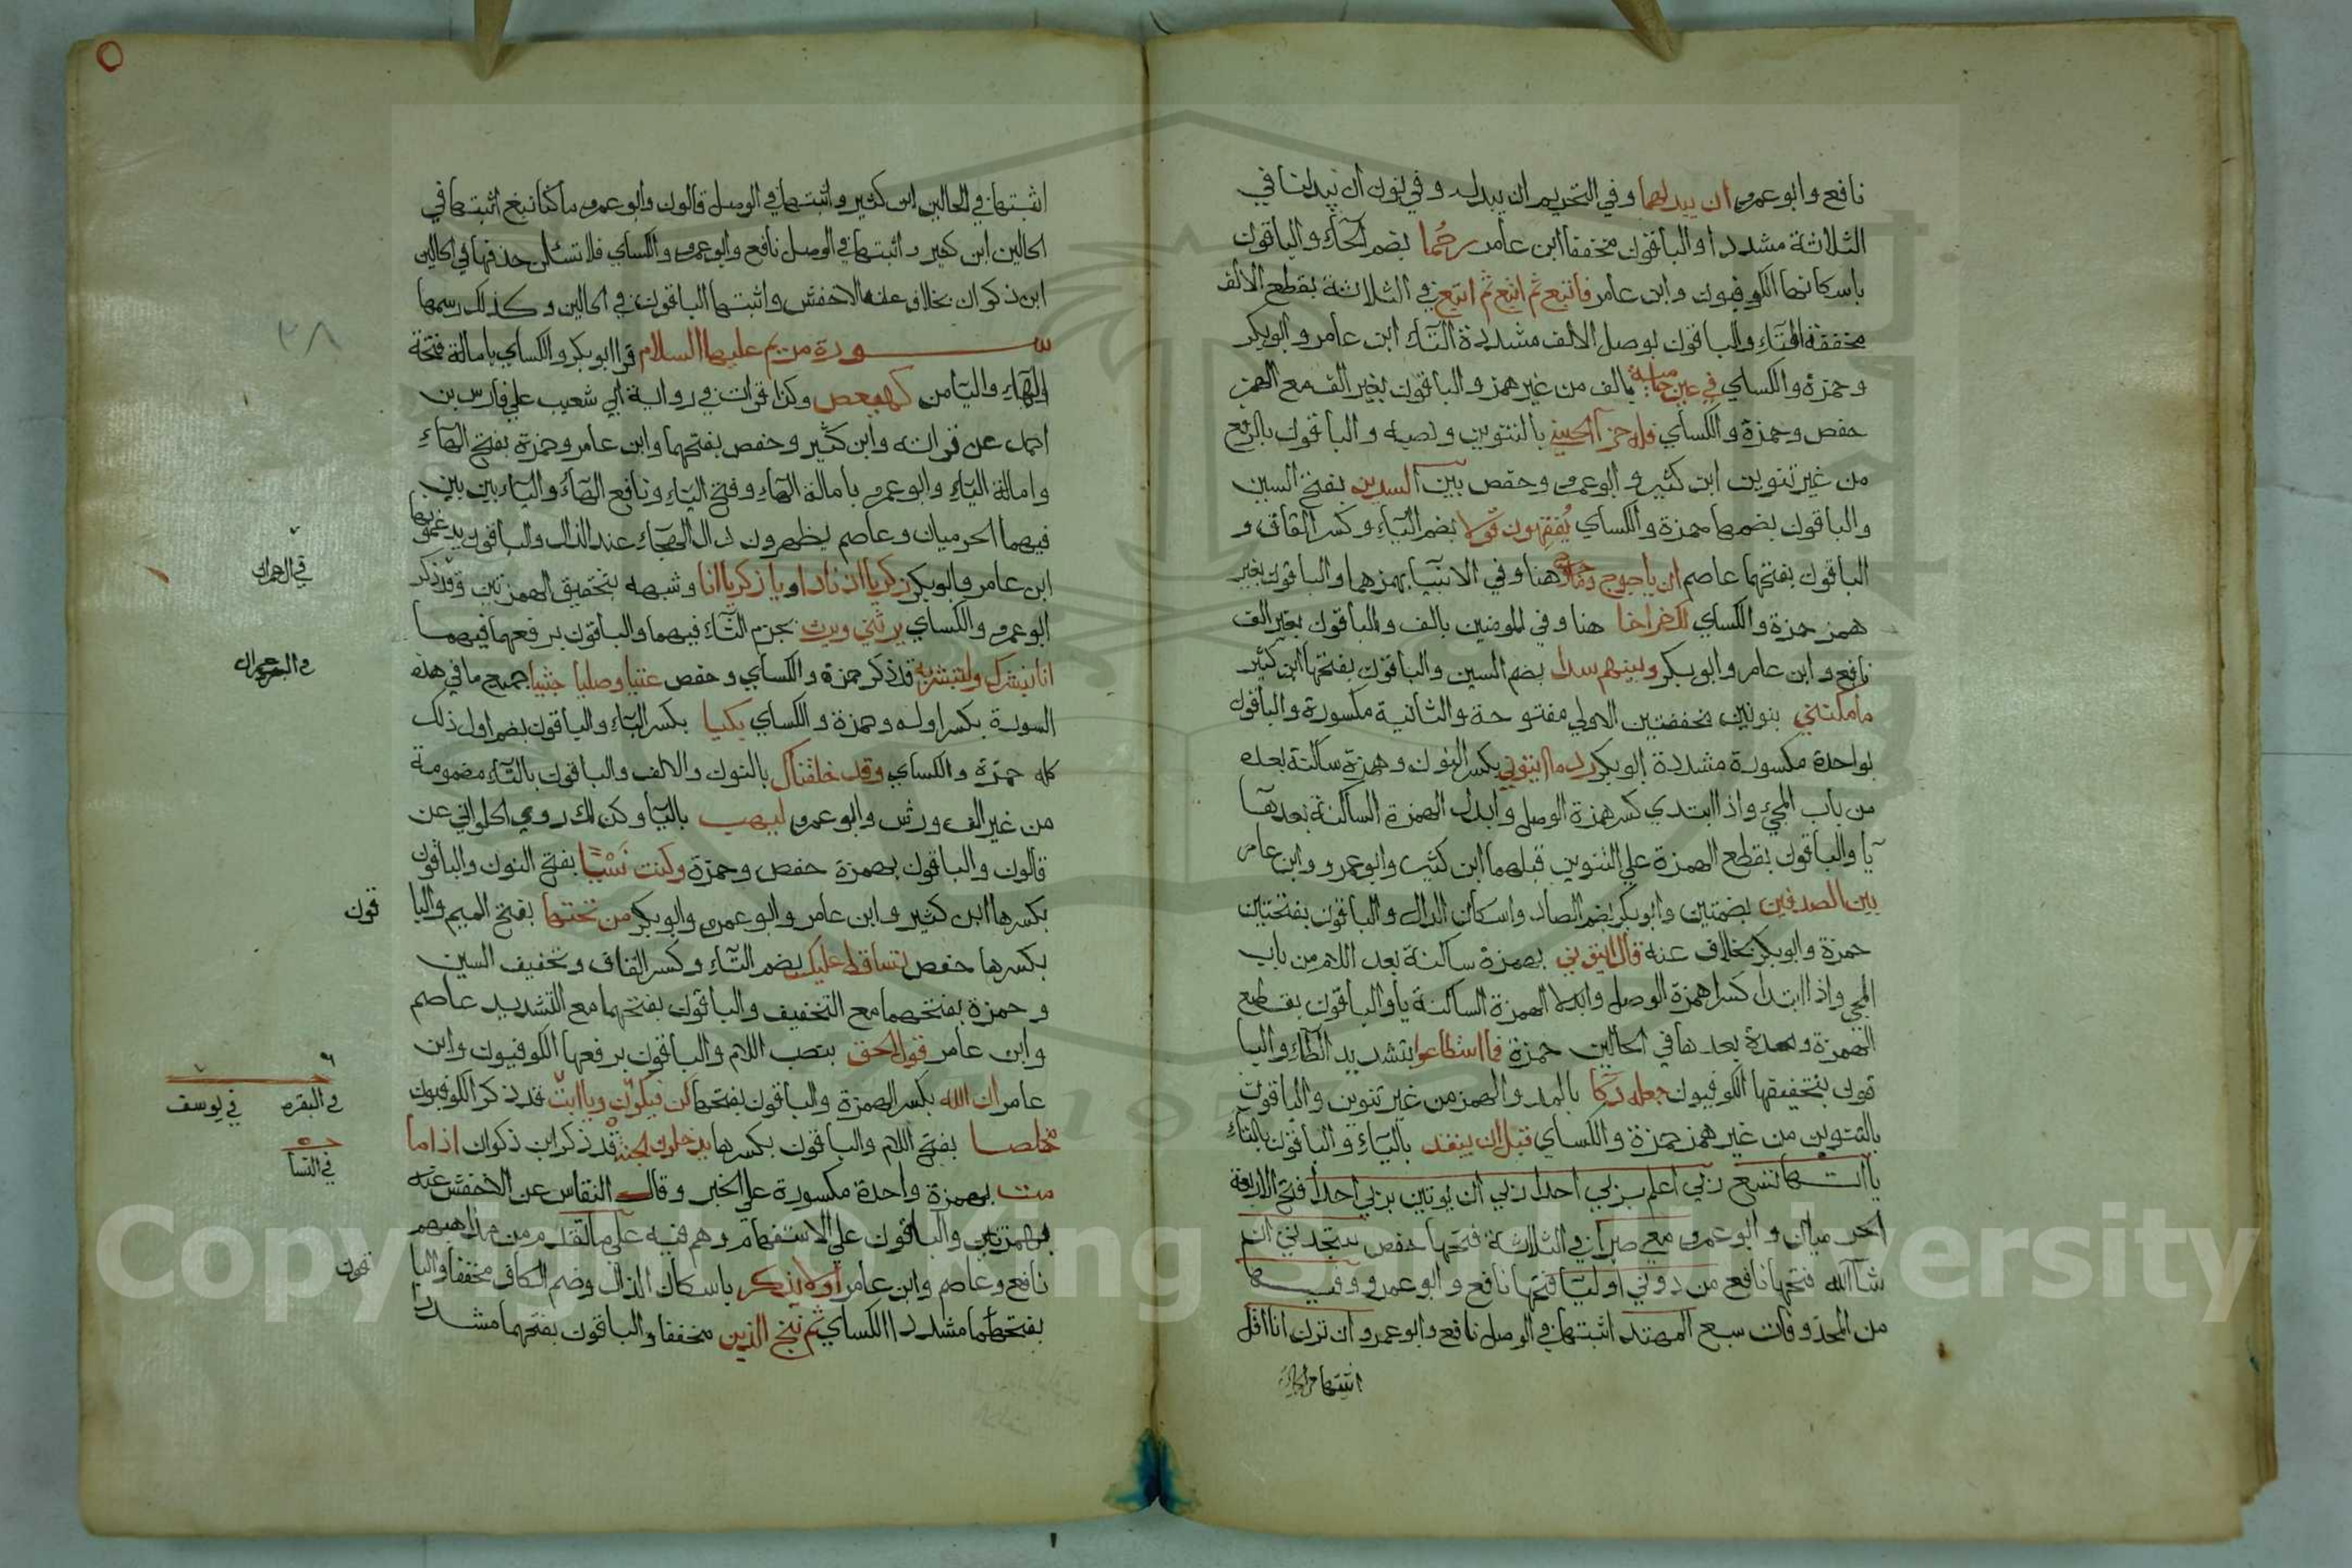 نافع وابو عمرو ان يبدلهما وفي التحريم ان يبدله وفي نون ان يبدلنا في
الثلاثة مشددا والباقون مخففا ابن عامر رحما بضم الحاء والباقون
باسكانها الكوفيون وابن عامر فاتبع ثم اتبع ثم اتبع في الثلاثة بقطع الالف
مخففة التاء والباقون بوصل الالف مشددة التاء ابن عامر وابو بكر
وحمزة والكساي في عين حامية بالف من غير همز والباقون بغير الف مع الهمز
حفص وحمزة والكساي فله جزآ الحسنى بالتنوين ونصبه والباقون بالرفع
من غير تنوين ابن كثير وابو عمرو وحفص بين السدين بفتح السين
والباقون بضمها حمزة والكساي يُفقِهون قولا بضم الياء وكسر القاف و
الباقون بفتحها عاصم ان ياجوج وماجوج هنا وفي الانبيا بهمزهما والباقون بغير
همز حمزة والكساي الخراجا هنا وفي المومنين بالف والباقون بغير الف
نافع وابن عامر وابو بكر وبينهم سدا بضم السين والباقون بفتحها ابن كثير
ما مكنني بنونين مخففتين الاولى مفتوحة والثانية مكسورة والباقون
بواحدة مكسورة مشددة ابو بكر ردما ائتوني بكسر التنوين وهمزة ساكنة بعده
من باب المجيء واذا ابتدي كسر همزة الوصل وابدل الهمزة الساكنة بعدها
يا والباقون بقطع الهمزة علي التنوين قبلهما ابن كثير وابو عمرو وابن عامر
بين الصدفين بضمتين وابو بكر بضم الصاد واسكان الدال والباقون بفتحتين
حمزة وابو بكر بخلاف عنه قال ائتوني بهمزة ساكنة بعد اللام من باب
المجي واذا ابتدا كسرا همزة الوصل وابدلا الهمزة الساكنة يا والباقون بقطع
الهمزة ومدة بعدها في الحالين حمزة فما اسطاعوا بتشديد الطاء والبا
قون بتخفيفها الكوفيون جعله دكا بالمد والهمز من غير تنوين والباقون
بالتنوين من غير همز حمزة والكساي قبل ان ينفد بالياء والباقون بالتاء
ياآتها تسع ربي اعلم بربي احدا ربي ان يوتين بربي احدا فتح الاربعة
الحرميان وابو عمرو معي صبرا في الثلاثة فتحها حفص ستجدني ان
شآ الله فتحها نافع من دوني اوليا فتحها نافع وابو عمرو وفيها
من المحذوفات سبع المهتد اثبتها في الوصل نافع وابو عمرو ان ترن انا اقل
اثبتها في الحالين
اثبتها في الحالين ابن كثير واثبتها في الوصل قالون وابو عمرو ما كنا نبغ اثبتها في
الحالين ابن كثير واثبتها في الوصل نافع وابو عمرو والكساي فلا تسئلن حذفها في الحالين
ابن ذكوان بخلاف عنه الاخفش واثبتها الباقون في الحالين وكذلك رسمها
سورة مريم عليها السلام قرا ابو بكر والكساي بامالة فتحة
الهاء واليا من كهيعص وكذا قرات في رواية ابي شعيب علي فارس بن
احمد عن قراته وابن كثير وحفص بفتحهما وابن عامر وحمزة بفتح الهاء
وامالة الياء وابو عمرو بامالة الهاء وفتح الياء ونافع الهاء والياء بين بين
فيهما الحرميان وعاصم يظهرون دال الهجاء عند الذال والباقون يدغمونها
ابن عامر وابو بكر زكريا اذ نادا ويا زكريا انا وشبهه بتحقيق الهمزتين وقد ذكر
ابو عمرو والكساي يرثني ويرث بجزم الثاء فيهما والباقون برفعهما فيهما
انا نبشرك ولتبشر به قد ذكر حمزة والكساي وحفص عتيا وصليا جثيا جميع ما في هذه
السورة بكسر اوله وحمزة والكساي بكيا بكسر الباء والباقون بضم اول ذلك
كله حمزة والكساي وقد خلقناك بالنون والالف والباقون بالتاء مضمومة
من غير الف ورش وابو عمرو ليهب باليا وكذلك روي الحلواني عن
قالون والباقون بهمزة حفص وحمزة وكنت نَسْيًا بفتح النون والباقون
بكسرها ابن كثير وابن عامر وابو عمرو وابو بكر من تحتها بفتح الميم والبا
قون
بكسرها حفص تساقط عليك بضم التاء وكسر القاف وتخفيف السين
وحمزة بفتحهما مع التخفيف والباقون بفتحهما مع التشديد عاصم
وابن عامر قول الحق بنصب اللام والباقون برفعها الكوفيون وابن
عامر ان الله بكسر الهمزة والباقون بفتحها كن فيكون ويا ابت قد ذكر الكوفيون
مخلصا بفتح اللام والباقون بكسرها يدخلون الجنة قد ذكر ابن ذكوان اذا ما
مت بهمزة واحدة مكسورة علي الخبر وقال النقاش عن الاخفش عنه
بهمزتين والباقون علي الاستفهام وهم فيه علي ما تقدم من مذاهبهم
نافع وعاصم وابن عامر اولا يذكر باسكان الذال وضم الكاف مخففا والبا
قون
بفتحهما مشددا الكساي ثم ننج الذين مخففا والباقون بفتحهما مشددا
في ال عمران
في ال عمران
في البقره
في يوسف
في النسا
٢٨
Copyright © King Saud University